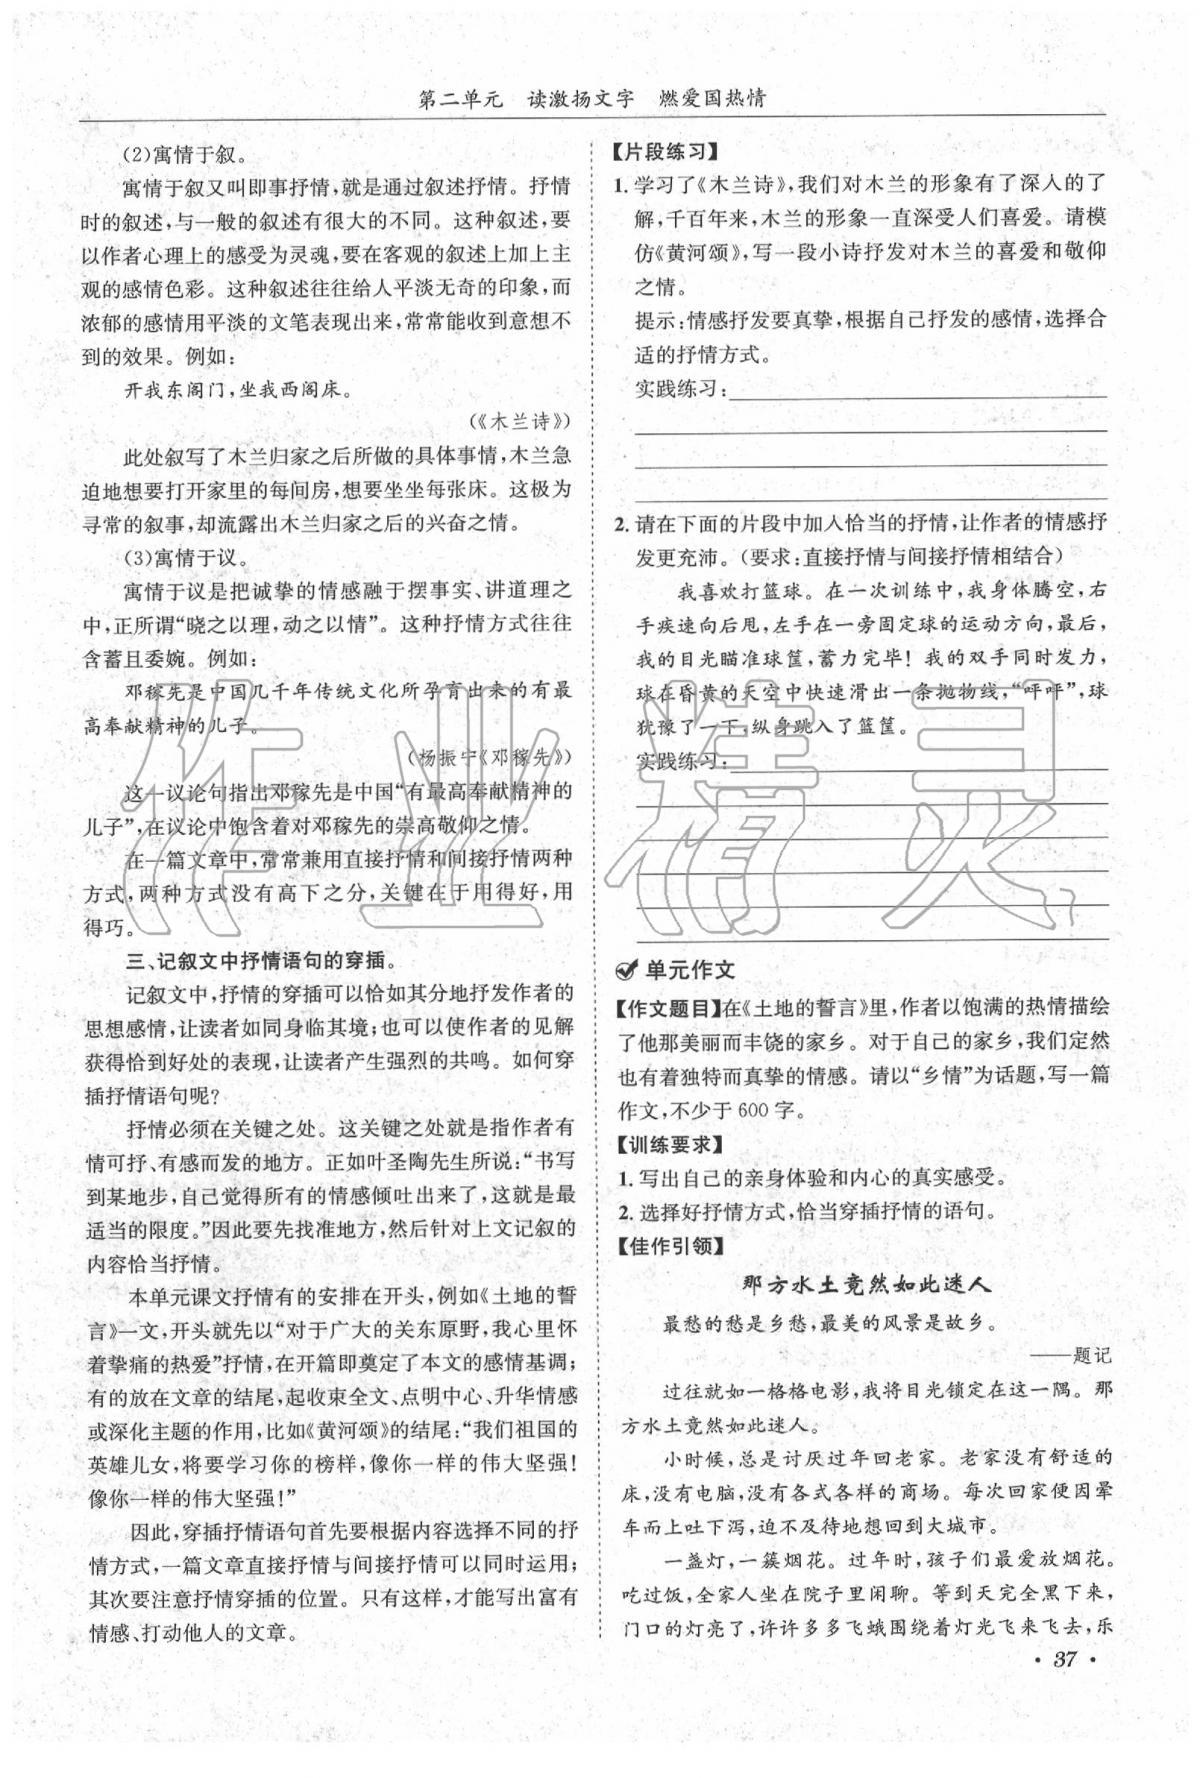 第二单元　读激扬文字　燃爱国热情
(2)寓情于叙。
寓情于叙又叫即事抒情,就是通过叙述抒情。抒情
时的叙述,与一般的叙述有很大的不同。这种叙述,要
以作者心理上的感受为灵魂,要在客观的叙述上加上主
观的感情色彩。这种叙述往往给人平淡无奇的印象,而
浓郁的感情用平淡的文笔表现出来,常常能收到意想不
到的效果。例如:
开我东阁门,坐我西阁床。
(《木兰诗》)
此处叙写了木兰归家之后所做的具体事情,木兰急
迫地想要打开家里的每间房,想要坐坐每张床。这极为
寻常的叙事,却流露出木兰归家之后的兴奋之情。
(3)寓情于议。
寓情于议是把诚挚的情感融于摆事实、讲道理之
中,正所谓“晓之以理,动之以情”。这种抒情方式往往
含蓄且委婉。例如:
邓稼先是中国几千年传统文化所孕育出来的有最
高奉献精神的儿子。
(杨振宁《邓稼先》)
这一议论句指出邓稼先是中国“有最高奉献精神的
儿子”,在议论中饱含着对邓稼先的崇高敬仰之情。
在一篇文章中,常常兼用直接抒情和间接抒情两种
方式,两种方式没有高下之分,关键在于用得好,用
得巧。
三、记叙文中抒情语句的穿插。
记叙文中,抒情的穿插可以恰如其分地抒发作者的
思想感情,让读者如同身临其境;也可以使作者的见解
获得恰到好处的表现,让读者产生强烈的共鸣。如何穿
插抒情语句呢?
抒情必须在关键之处。这关键之处就是指作者有
情可抒、有感而发的地方。正如叶圣陶先生所说:“书写
到某地步,自己觉得所有的情感倾吐出来了,这就是最
适当的限度。”因此要先找准地方,然后针对上文记叙的
内容恰当抒情。
本单元课文抒情有的安排在开头,例如《土地的誓
言》一文,开头就先以“对于广大的关东原野,我心里怀
着挚痛的热爱”抒情,在开篇即奠定了本文的感情基调;
有的放在文章的结尾,起收束全文、点明中心、升华情感
或深化主题的作用,比如《黄河颂》的结尾:“我们祖国的
英雄儿女,将要学习你的榜样,像你一样的伟大坚强!
像你一样的伟大坚强!”
因此,穿插抒情语句首先要根据内容选择不同的抒
情方式,一篇文章直接抒情与间接抒情可以同时运用;
其次要注意抒情穿插的位置。只有这样,才能写出富有
情感、打动他人的文章。
【片段练习】
1. 学习了《木兰诗》,我们对木兰的形象有了深入的了
解,千百年来,木兰的形象一直深受人们喜爱。请模
仿《黄河颂》,写一段小诗抒发对木兰的喜爱和敬仰
之情。
提示:情感抒发要真挚,根据自己抒发的感情,选择合
适的抒情方式。
实践练习:
2. 请在下面的片段中加入恰当的抒情,让作者的情感抒
发更充沛。(要求:直接抒情与间接抒情相结合)
我喜欢打篮球。在一次训练中,我身体腾空,右
手疾速向后甩,左手在一旁固定球的运动方向,最后,
我的目光瞄准球筐,蓄力完毕!我的双手同时发力,
球在昏黄的天空中快速滑出一条抛物线,“呯呯”,球
犹豫了一下,纵身跳入了篮筐。
实践练习:
单元作文
【作文题目】在《土地的誓言》里,作者以饱满的热情描绘
了他那美丽而丰饶的家乡。对于自己的家乡,我们定然
也有着独特而真挚的情感。请以“乡情”为话题,写一篇
作文,不少于 600 字。
【训练要求】
1. 写出自己的亲身体验和内心的真实感受。
2. 选择好抒情方式,恰当穿插抒情的语句。
【佳作引领】
那方水土竟然如此迷人
最愁的愁是乡愁,最美的风景是故乡。
——题记
过往就如一格格电影,我将目光锁定在这一隅。那
方水土竟然如此迷人。
小时候,总是讨厌过年回老家。老家没有舒适的
床,没有电脑,没有各式各样的商场。每次回家便因晕
车而上吐下泻,迫不及待地想回到大城市。
一盏灯,一簇烟花。过年时,孩子们最爱放烟花。
吃过饭,全家人坐在院子里闲聊。等到天完全黑下来,
门口的灯亮了,许许多多飞蛾围绕着灯光飞来飞去,乐
· 37 ·
作业精灵